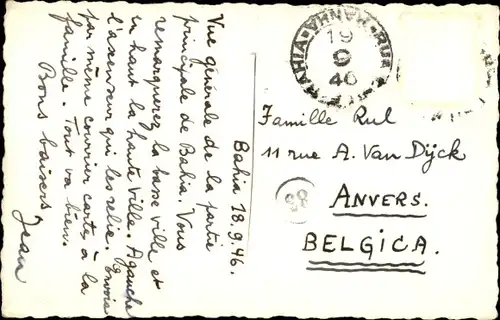 Bahia 18.9.46.
Vue générale de la partie
principale de Bahia. Vous
remarquerez la basse ville et
en haut la haute ville. A gauche
l'ascenseur qui les relie. Envoie
par même courrier cartes à la
famille. Tout va bien.
Bons baisers,
Jean
BAHIA
19
9
46
Famille Rul
11 rue A. Van Dijck
ANVERS.
BELGICA.